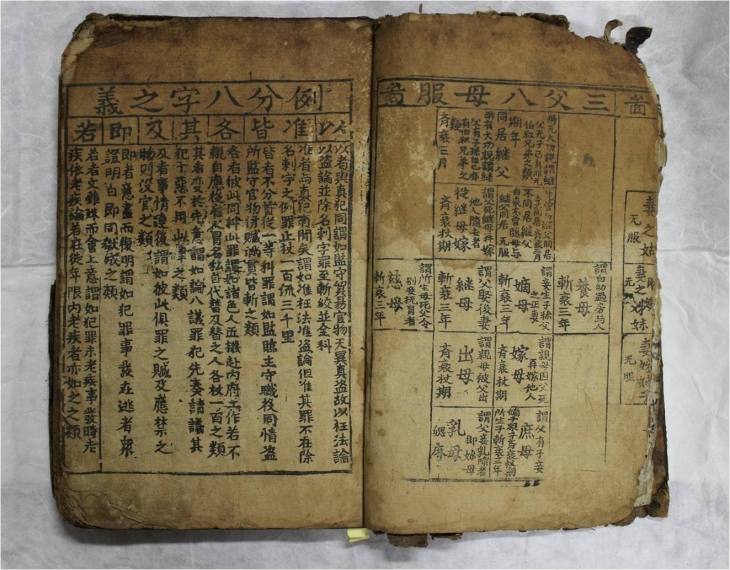 啚
妻之姑
无服
妻之姊妹
无服
无服
三父八母服啚
同居繼父
期年
齊衰三月
不同居繼父
无服
從繼母嫁
齊衰杖期
養母
謂自幼過房与人
斬衰三年
嫡母
謂妾生子稱父之正妻
斬衰三年
繼母
謂父娶後妻
斬衰三年
慈母
謂所生母死父令別妾撫育者
斬衰三年
嫁母
謂親母因父死再嫁他人
齊衰杖期
出母
謂親母被父出
齊衰杖期
庶母
謂父有子妾
嫡子衆子齊衰杖期
所生子斬衰三年
乳母
謂父妾乳哺者
即妳母
緦麻
例分八字之義
以 准 皆 各 其 及 即 若
以者與真犯同謂如監守貿易官物无異真盗故以枉法論
以盗論並除名刺字罪至斬絞並全科
准者與真犯有間矣謂如准枉法准盗論但准其罪不在除
名刺字之例罪止杖一百流三千里
皆者不分首從一等科罪謂如監臨主守職役同情盗
所監守官物併贓滿貫皆斬之類
各者彼此同科此罪謂如諸色人匠撥赴内府工作若不
親自應役雇人冒名私自代替及替之人各杖一百之類
其者变於先意謂如論八議罪犯先奏請議其
犯十惡不用此事之類
及者事情連後謂如彼此俱罪之贓及應禁之
物則没官之類
即者意盡而復明謂如犯罪事發在逃者衆
證明白即同獄成之類
若者文雖殊而會上意謂如犯罪未老疾事發時老
疾依老疾論若在徒年限内老疾者亦如之之類